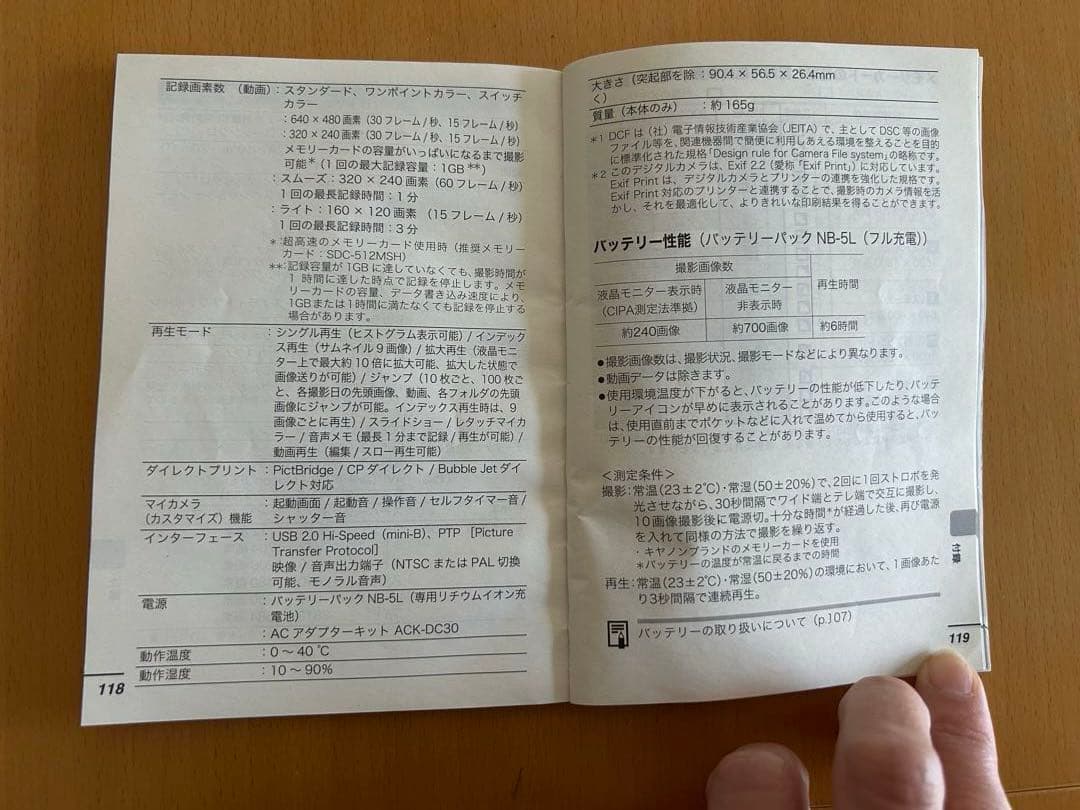 記録画素数 (動画) : スタンダード、ワンポイントカラー、スイッチ
カラー
: 640 × 480 画素 (30 フレーム / 秒、15 フレーム / 秒)
: 320 × 240 画素 (30 フレーム / 秒、15 フレーム / 秒)
メモリーカードの容量がいっぱいになるまで撮影
可能* (1 回の最大記録容量 : 1GB **)
: スムーズ : 320 × 240 画素 (60 フレーム / 秒)
1 回の最長記録時間 : 1 分
: ライト : 160 × 120 画素 (15 フレーム / 秒)
1 回の最長記録時間 : 3 分
* : 超高速のメモリーカード使用時 (推奨メモリー
カード : SDC-512MSH)
**: 記録容量が 1GB に達していなくても、撮影時間が
1 時間に達した時点で記録を停止します。メモ
リーカードの容量、データ書き込み速度により、
1GB または 1 時間に満たなくても記録を停止する
場合があります。
再生モード : シングル再生 (ヒストグラム表示可能) / インデック
ス再生 (サムネイル 9 画像) / 拡大再生 (液晶モニ
ター上で最大約 10 倍に拡大可能、拡大した状態で
画像送りが可能) / ジャンプ (10 枚ごと、100 枚ご
と、各撮影日の先頭画像、動画、各フォルダの先頭
画像にジャンプが可能。インデックス再生時は、9
画像ごとに再生) / スライドショー / レタッチマイカ
ラー / 音声メモ (最長 1 分まで記録 / 再生が可能) /
動画再生 (編集 / スロー再生可能)
ダイレクトプリント : PictBridge / CP ダイレクト / Bubble Jet ダイ
レクト対応
マイカメラ : 起動画面 / 起動音 / 操作音 / セルフタイマー音 /
(カスタマイズ) 機能 シャッター音
インターフェース : USB 2.0 Hi-Speed (mini-B)、PTP [Picture
Transfer Protocol]
映像 / 音声出力端子 (NTSC または PAL 切換
可能、モノラル音声)
電源 : バッテリーパック NB-5L (専用リチウムイオン充
電池)
: AC アダプターキット ACK-DC30
動作温度 : 0 ~ 40 ℃
動作湿度 : 10 ~ 90%
118
大きさ (突起部を除 : 90.4 × 56.5 × 26.4mm
く)
質量 (本体のみ) : 約 165g
*1 DCF は (社) 電子情報技術産業協会 (JEITA) で、主として DSC 等の画像
ファイル等を、関連機器間で簡便に利用しあえる環境を整えることを目的
に標準化された規格「Design rule for Camera File system」の略称です。
*2 このデジタルカメラは、Exif 2.2 (愛称「Exif Print」) に対応しています。
Exif Print は、デジタルカメラとプリンターの連携を強化した規格です。
Exif Print 対応のプリンターと連携することで、撮影時のカメラ情報を活
かし、それを最適化して、よりきれいな印刷結果を得ることができます。
バッテリー性能 (バッテリーパック NB-5L (フル充電))
撮影画像数
液晶モニター表示時 液晶モニター 再生時間
(CIPA測定法準拠) 非表示時
約240画像 約700画像 約6時間
●撮影画像数は、撮影状況、撮影モードなどにより異なります。
●動画データは除きます。
●使用環境温度が下がると、バッテリーの性能が低下したり、バッテ
リーアイコンが早めに表示されることがあります。このような場合
は、使用直前までポケットなどに入れて温めてから使用すると、バッ
テリーの性能が回復することがあります。
<測定条件>
撮影 : 常温 (23±2℃)・常湿 (50±20%) で、2回に1回ストロボを発
光させながら、30秒間隔でワイド端とテレ端で交互に撮影し、
10画像撮影後に電源切。十分な時間*が経過した後、再び電源
を入れて同様の方法で撮影を繰り返す。
・キヤノンブランドのメモリーカードを使用
*バッテリーの温度が常温に戻るまでの時間
再生 : 常温 (23±2℃)・常湿 (50±20%) の環境において、1画像あた
り3秒間隔で連続再生。
バッテリーの取り扱いについて (p.107)
付録
119